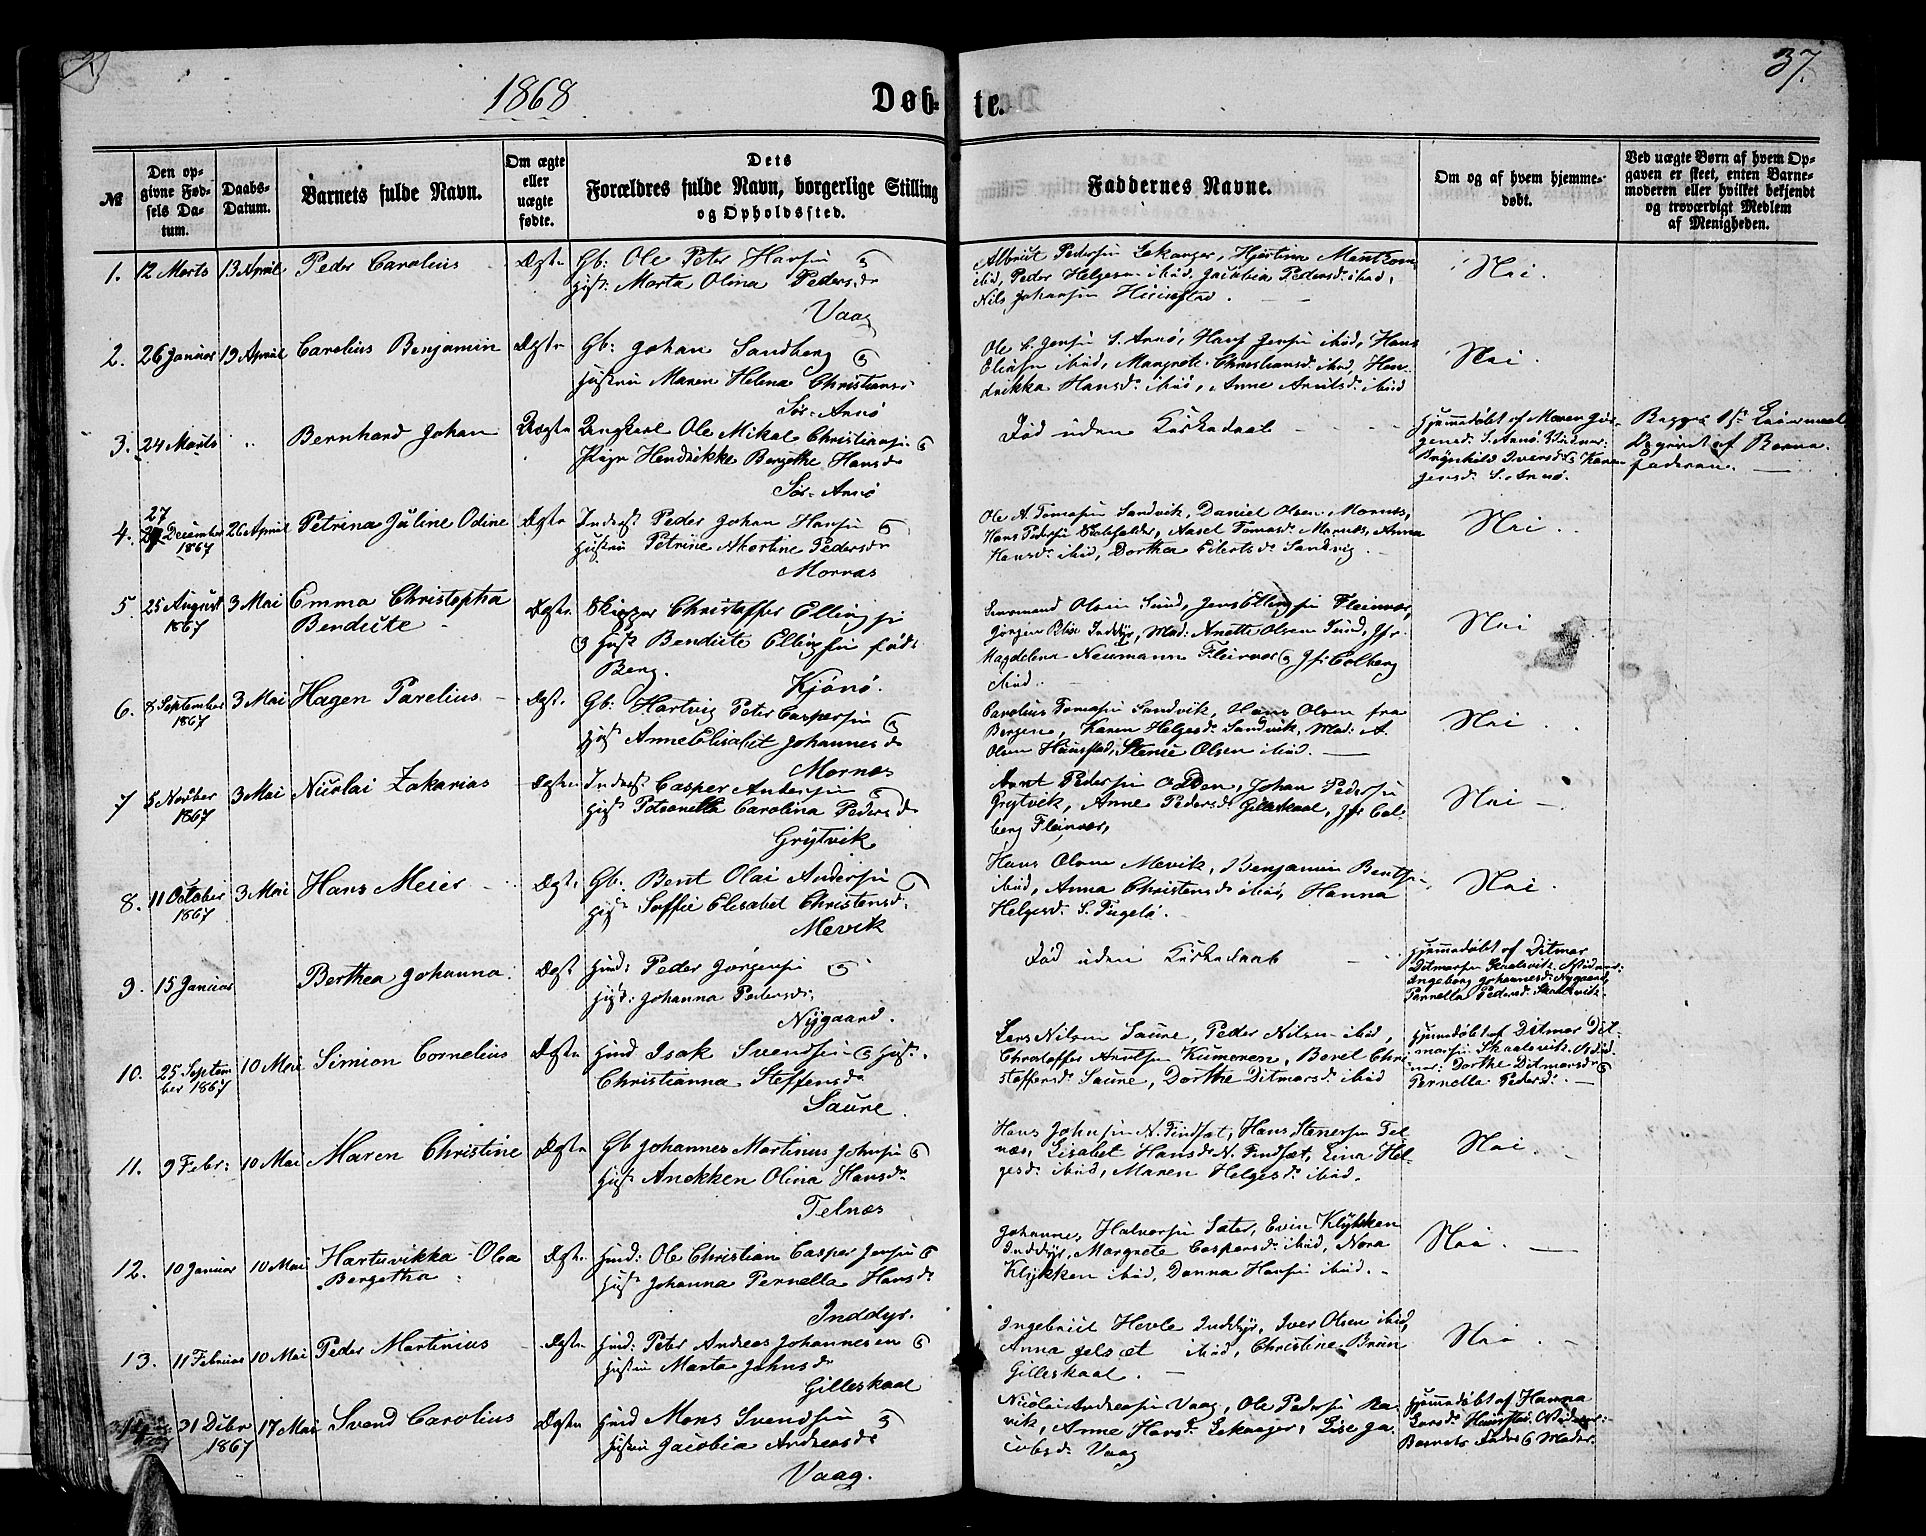 1868
Døb-
te.
37.
№
Den op-
givne Fød-
sels Da-
tum.
Daabs-
Datum.
Barnets fulde Navn.
Om ægte
eller
uægte
fødte.
Dets
Forældres fulde Navn, borgerlige Stilling
og Opholdssted.
Faddernes Navne.
Om og af hvem hjemme-
døbt.
Ved uægte Børn af hvem Op-
gaven er skeet, enten Barne-
moderen eller hvilket bekjendt
og troværdigt Medlem
af Menigheden.
1. 12 Marts 13 April Peder Carolius Ægte Gb: Ole Peter Hansen
Marta Olina Pedersd.
Vaag
Albrigt Pedersen Lekanger, Hjertine
ibid, Peder Helgesen ibid, Jacobia Pedersd: ibid,
Nils Johansen
Nei.
2. 26 Januar 19 April Carelius Benjamin Ægte Gb: Johan Sandberg
Hustru Maren Helena Christians:
Sør-Arnø
Ole C. Jensen S. Arnø, Hans Jensen ibid, Hans
Olaisen ibid, Margrete Christiansd: ibid, Hen-
drikka Hansd: ibid, Anne Arntsd: ibid
Nei.
3. 24 Marts " Bernhard Johan Uægte Ungkarl Ole Mikal Christiansen
Pige Hendrikke Bergethe Hansd
Sør-Arnø
Død uden Kirkedaab
Hjemmedøbt af Maren Jør-
gensd: S. Arnø,
Brynhild Iversd: Karen
gensd: S. Arnø.
Begges 1ste Leiermaal
Begivet af Barne-
faderen.
4. 27 December 1867 26 April Petrina Juline Odine Ægte Inderst Peder Johan Hansen
Hustru Petrine Martine Pedersd
Mornæs
Ole A. Tomasen Sandvik, Daniel Olsen Mornæs,
Hans Pedersen Aasel Tomasd: Mornæs, Anna
Hansd: ibid, Dorthea Eilertsd: Sandvig
Nei.
5. 25 August 1867 3 Mai Emma Christopha
Bendicte Ægte Skipper Christoffer Ellingsen
Hust Bendicte Ellingsen født
Berg. Kjønø.
Olsen Sund, Jens Ellingsen Fleinvær,
Jørgen Blix Inddyr, Mad: Anette Olsen Sund, Jfr.
Magdelena Neumann Fleinvær Jfr Colberg
ibid.
Nei
6. 8 September 1867 3 Mai Hagen Parelius Ægte Gb: Hartvig Peter Caspersen
Hust Anne Elisabet Johannesd
Mornæs
Parelius Tomasen Sandvik, Hans Olsen fra
Bergen, Karen Helgesd: Sandvik, Mad: A.
Olsen Olsen ibid.
Nei.
7 5 Novber 1867 3 Mai Nicolai Zakarias Ægte Inderst Casper Andersen
Hust Petronella Carolina Pedersd
Grytvik
Arnt Pedersen Odden, Johan Pedersen
Grytvik, Anne Pedersd: Gilleskaal, Jfr Col-
berg Fleinvær,
Nei
8. 11 October 1867 3 Mai Hans Meier Ægte Gb: Bent Olai Andersen
Hust Soffie Elisabet Christensd:
Mevik
Hans Olsen Mevik, Benjamin Bentsen
ibid, Anna Christensd: ibid, Hanna
Helgesd: S. Fugelø.
Nei.
9. 15 Januar Berthea Johanna Ægte Hmd: Peder Jørgensen
Hust: Johanna Pedersd:
Nygaard.
Død uden Kirkedaab
Hjemmedøbt af Ditmar
Ditmarsen Skaalsvik,
Ingeborg Johannesd: Nygaard,
Pernella Pedersd: Skaalsvik
10. 25 Septem-
ber 1867 10 Mai Simion Cornelius Ægte Hmd Isak Svendsen Hust.
Christianna Steffensd
Saure.
Lars Nilsen Saure, Peder Nilsen ibid,
Christoffer Arntsen Kumoren, Berel Chri-
stoffersd: Saure, Dorthe Ditmarsd: ibid
Hjemmedøbt af Ditmar Dit-
marsen Skaalsvik,
Dorthe Ditmarsd:
Pernella Pedersd:
11. 9 Febr: 10 Mai Maren Christine Ægte Gb Johannes Martinus Johnsen
Hust Anekken Olina Hansd
Telnæs
Hans Johnsen N. Findsæt, Hans Stenersen Tel-
næs, Lisabet Hansd: N. Findsæt, Lina Hel-
gesd: ibid, Maren Helgesd: ibid.
Nei.
12. 10 Januar 10 Mai Hartevikka Olea
Bergetha Ægte Hmd: Ole Christian Casper Jensen
Hust Johanna Pernella Hansd
Inddyr.
Johannes Halvorsen Sæter, Even Klykken
Inddyr, Margrete Caspersd: ibid, Nora
Klykken ibid, Danna Hansen ibid.
Nei.
13. 11 Februar 10 Mai Peder Martinius Ægte Hmd: Peter Andreas Johannesen
Hustru Marta Johnsd
Gilleskaal
Ingebrigt Hevle Inddyr, Iver Olsen ibid,
Anna Jelsæt ibid, Christine Bruun
Gilleskaal.
Nei.
14. 31 Dcbr 1867 17 Mai Svend Carolius Ægte Hmd Mons Svendsen
Hustru Jacobia Andreasd
Vaag.
Nicolai Andreasen Vaag, Ole Pedersen Ra-
vik, Anne Hansd: Lekanger, Lise Ja-
cobsd: Vaag
Hjemmedøbt af Hanna
Larsd:
Barnets Fader & Moder.